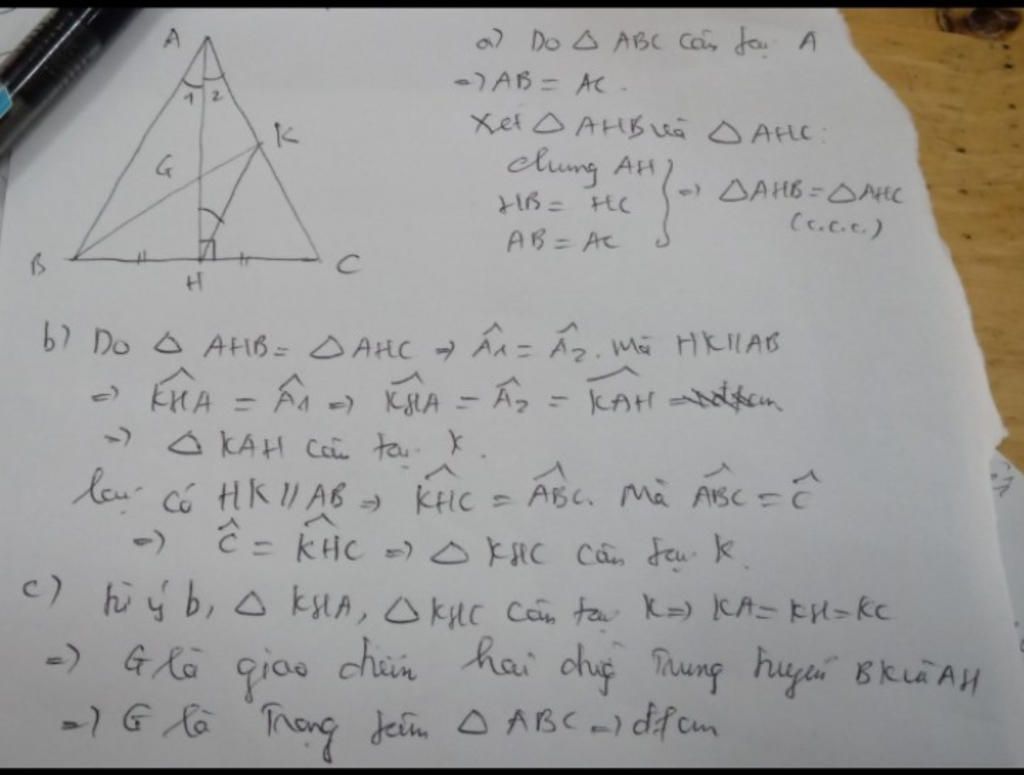 A
1 2
K
G
B
H
C
a) Do △ ABC cân tại A
=> AB = AC.
Xét △ AHB và △ AHC:
chung AH
HB = HC
AB = AC
} => △AHB = △AHC
(c.c.c.)
b) Do △ AHB = △ AHC => Â1 = Â2. Mà HK // AB
=> \widehat{KHA} = Â1 => \widehat{KHA} = Â2 = \widehat{KAH}
=> △ KAH cân tại K.
lại có HK // AB => \widehat{KHC} = \widehat{ABC}. Mà \widehat{ABC} = Ĉ
=> Ĉ = \widehat{KHC} => △ KHC cân tại K.
c) từ ý b, △ KHA, △ KHC cân tại K => KA = KH = KC
=> G là giao điểm hai đường trung tuyến BK và AH
=> G là trọng tâm △ ABC => đpcm